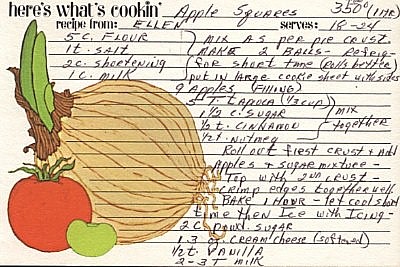 here's what's cookin' Apple Squares 350° (1 HR)
recipe from: ELLEN serves: 18-24
5 C. FLOUR MIX AS PER PIE CRUST.
1 t. SALT MAKE 2 BALLS - Refrig-
2 C. shortening for short time (Rolls better)
1 C. milk put in large cookie sheet with sides
9 Apples (FILLING)
5 T. TAPIOCA (1/3 cup)
1 1/2 C. SUGAR MIX
1/2 t. CINNAMON together
1/2 t. Nutmeg
Roll out first crust & Add
Apples & sugar mixture -
Top with 2nd crust -
crimp edges together well.
BAKE 1 HOUR - let cool short
time then Ice with Icing -
2 C. powd. sugar
1-3 oz. cream cheese (softened)
1/2 t. Vanilla
2-3 T milk